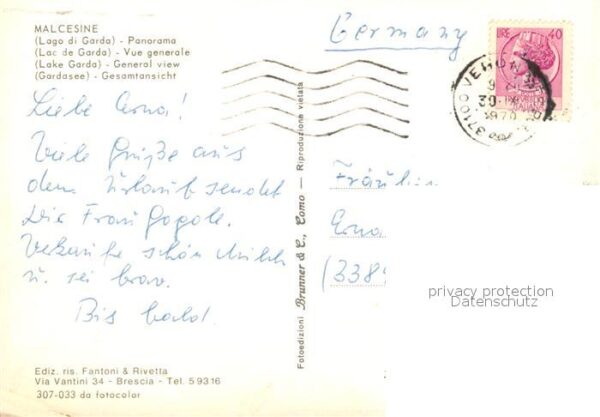 MALCESINE
(Lago di Garda) - Panorama
(Lac de Garda) - Vue generale
(Lake Garda) - General view
(Gardasee) - Gesamtansicht
Germany
LIRE 40
37100 VERONA
1970
Liebe Erna!
Viele Grüße aus
dem Urlaub sendet
Dir Frau Gogole.
Verkaufe schön Milch
u. sei brav.
Bis bald
Fotoedizioni Brunner & C., Como — Riproduzione vietata
Fräulein
Erna
(338
privacy protection
Datenschutz
Ediz. ris. Fantoni & Rivetta
Via Vantini 34 - Brescia - Tel. 59316
307-033 da fotocolor